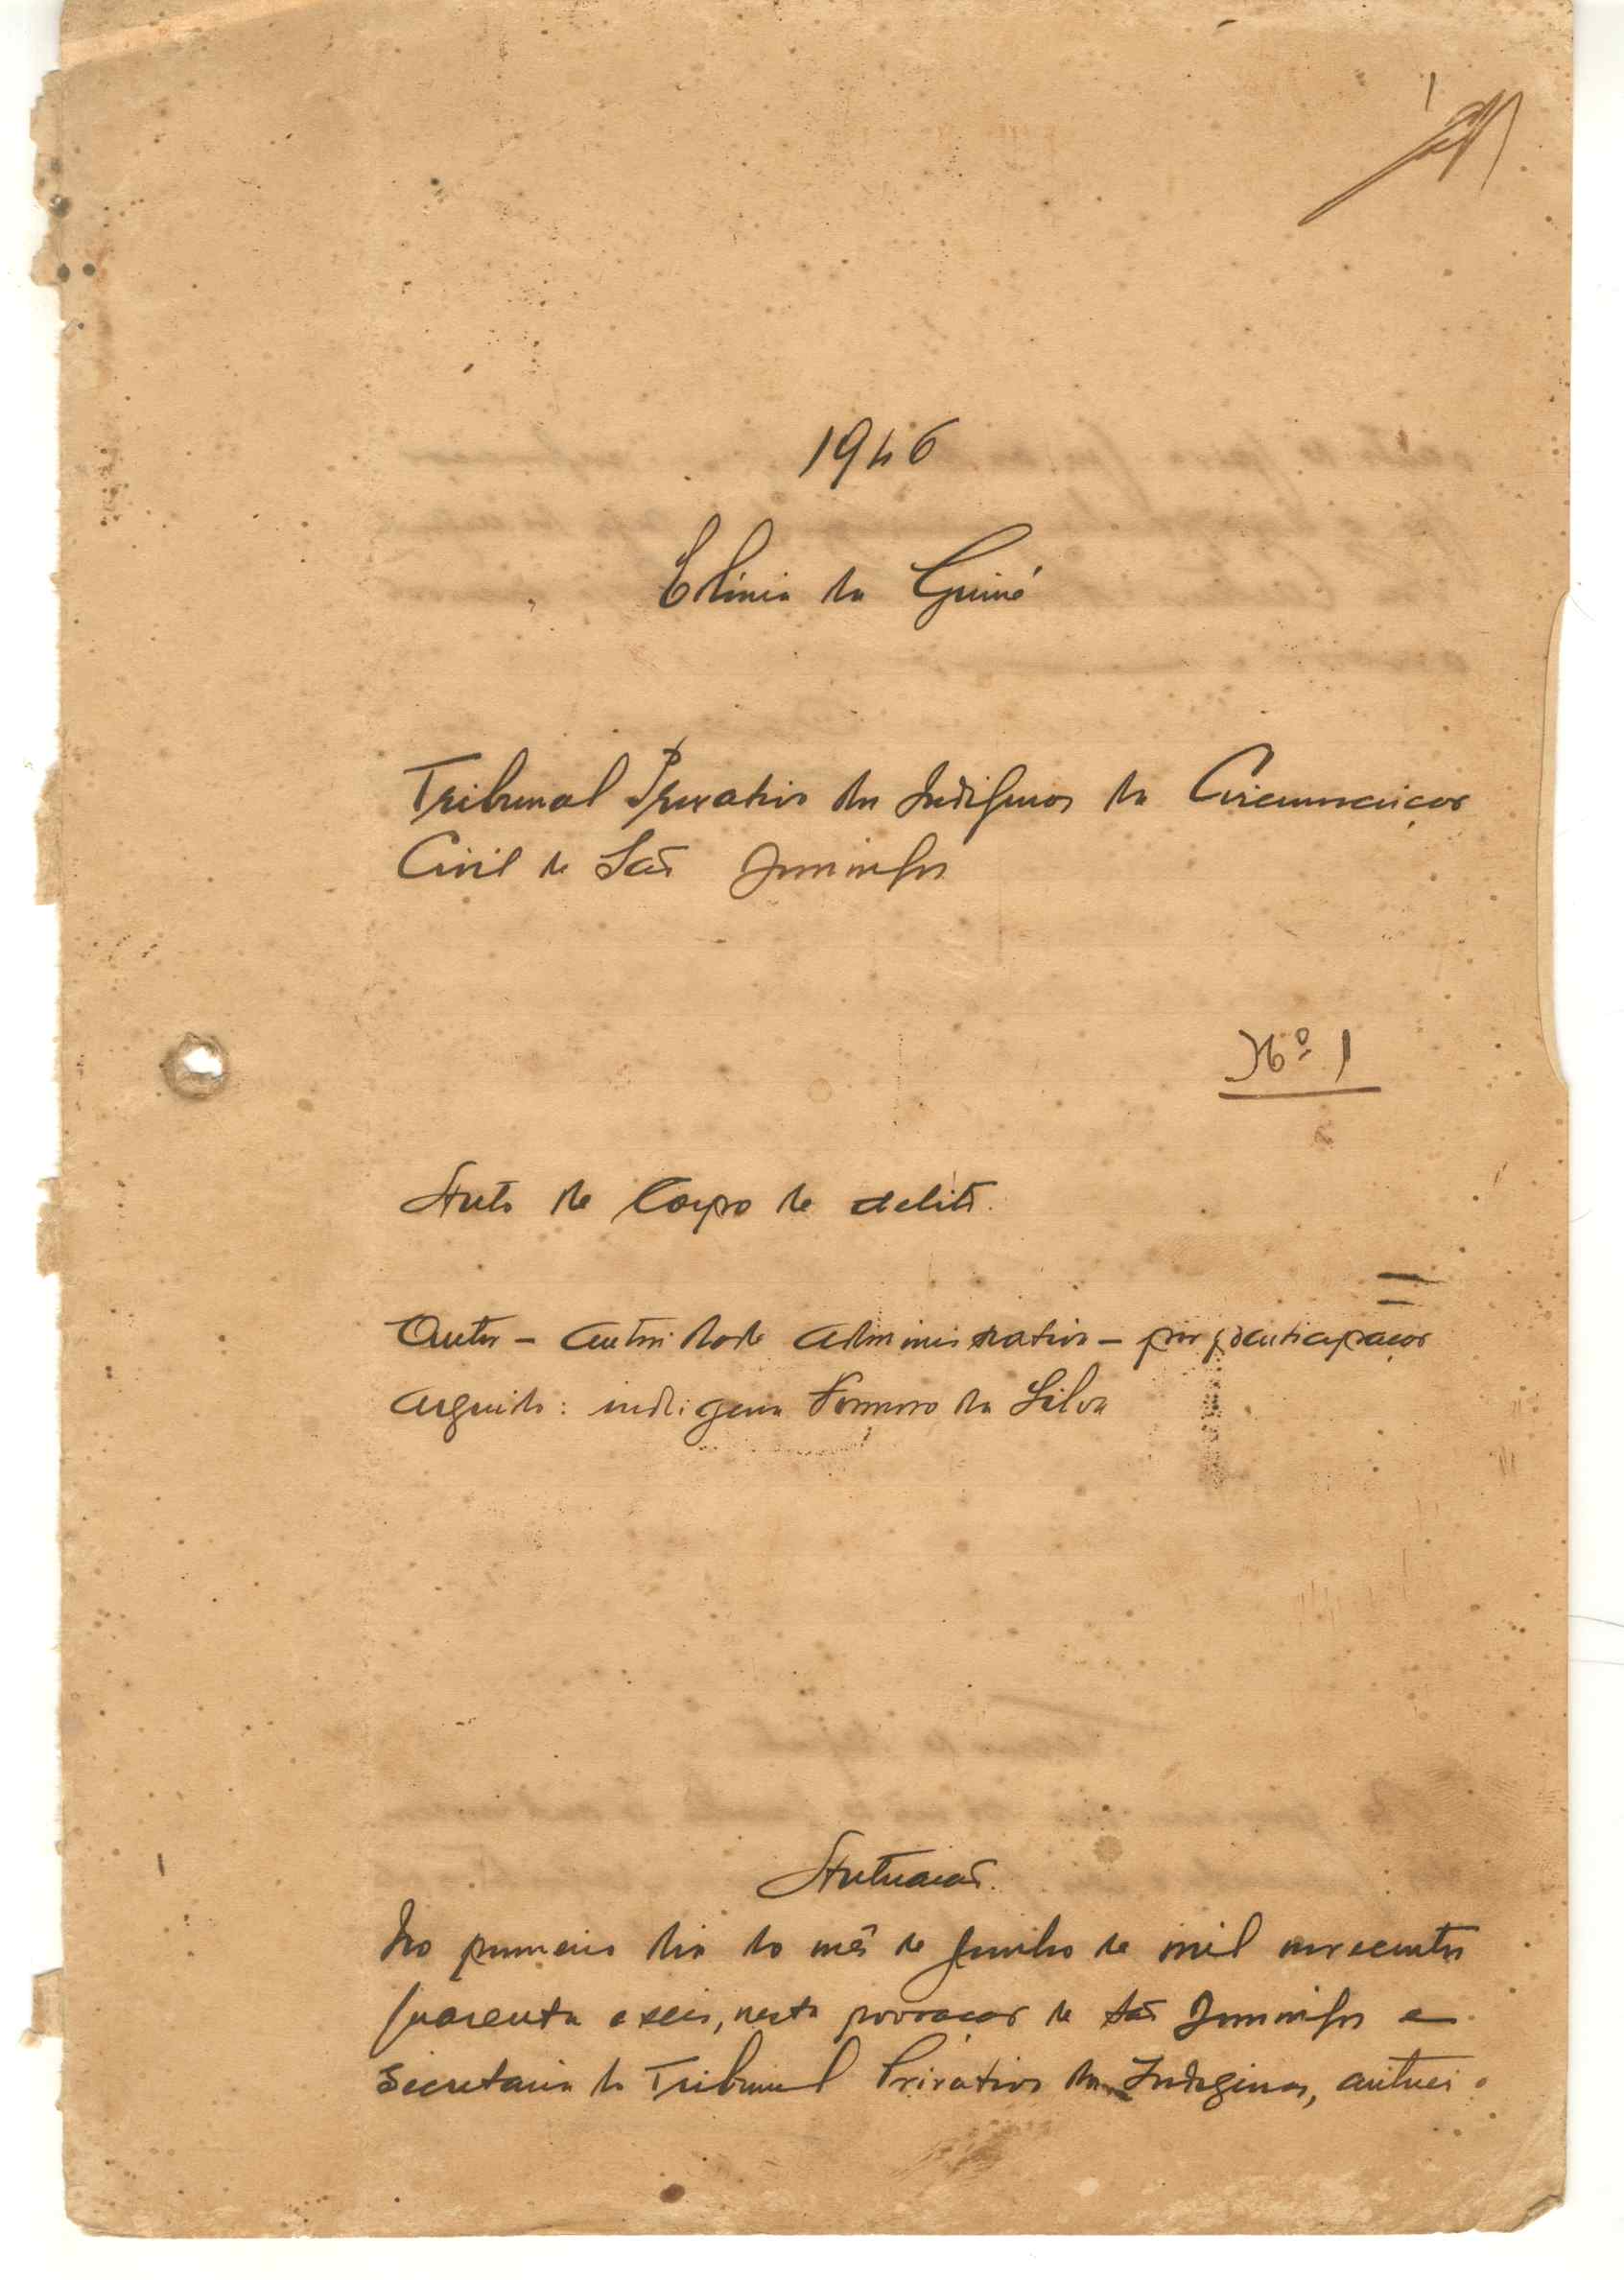 1
1946
Colónia da Guiné
Tribunal Privativo dos Indígenas da Circunscrição
Civil de São Domingos
Nº 1
Auto de Corpo de delito.
Autor - Autoridade Administrativa - por participação
Arguido: indígena da Silva
Autuação.
No primeiro dia do mês de Junho de mil novecentos
quarenta e seis, nesta povoação de São Domingos e
Secretaria do Tribunal Privativo dos Indígenas, autuei o